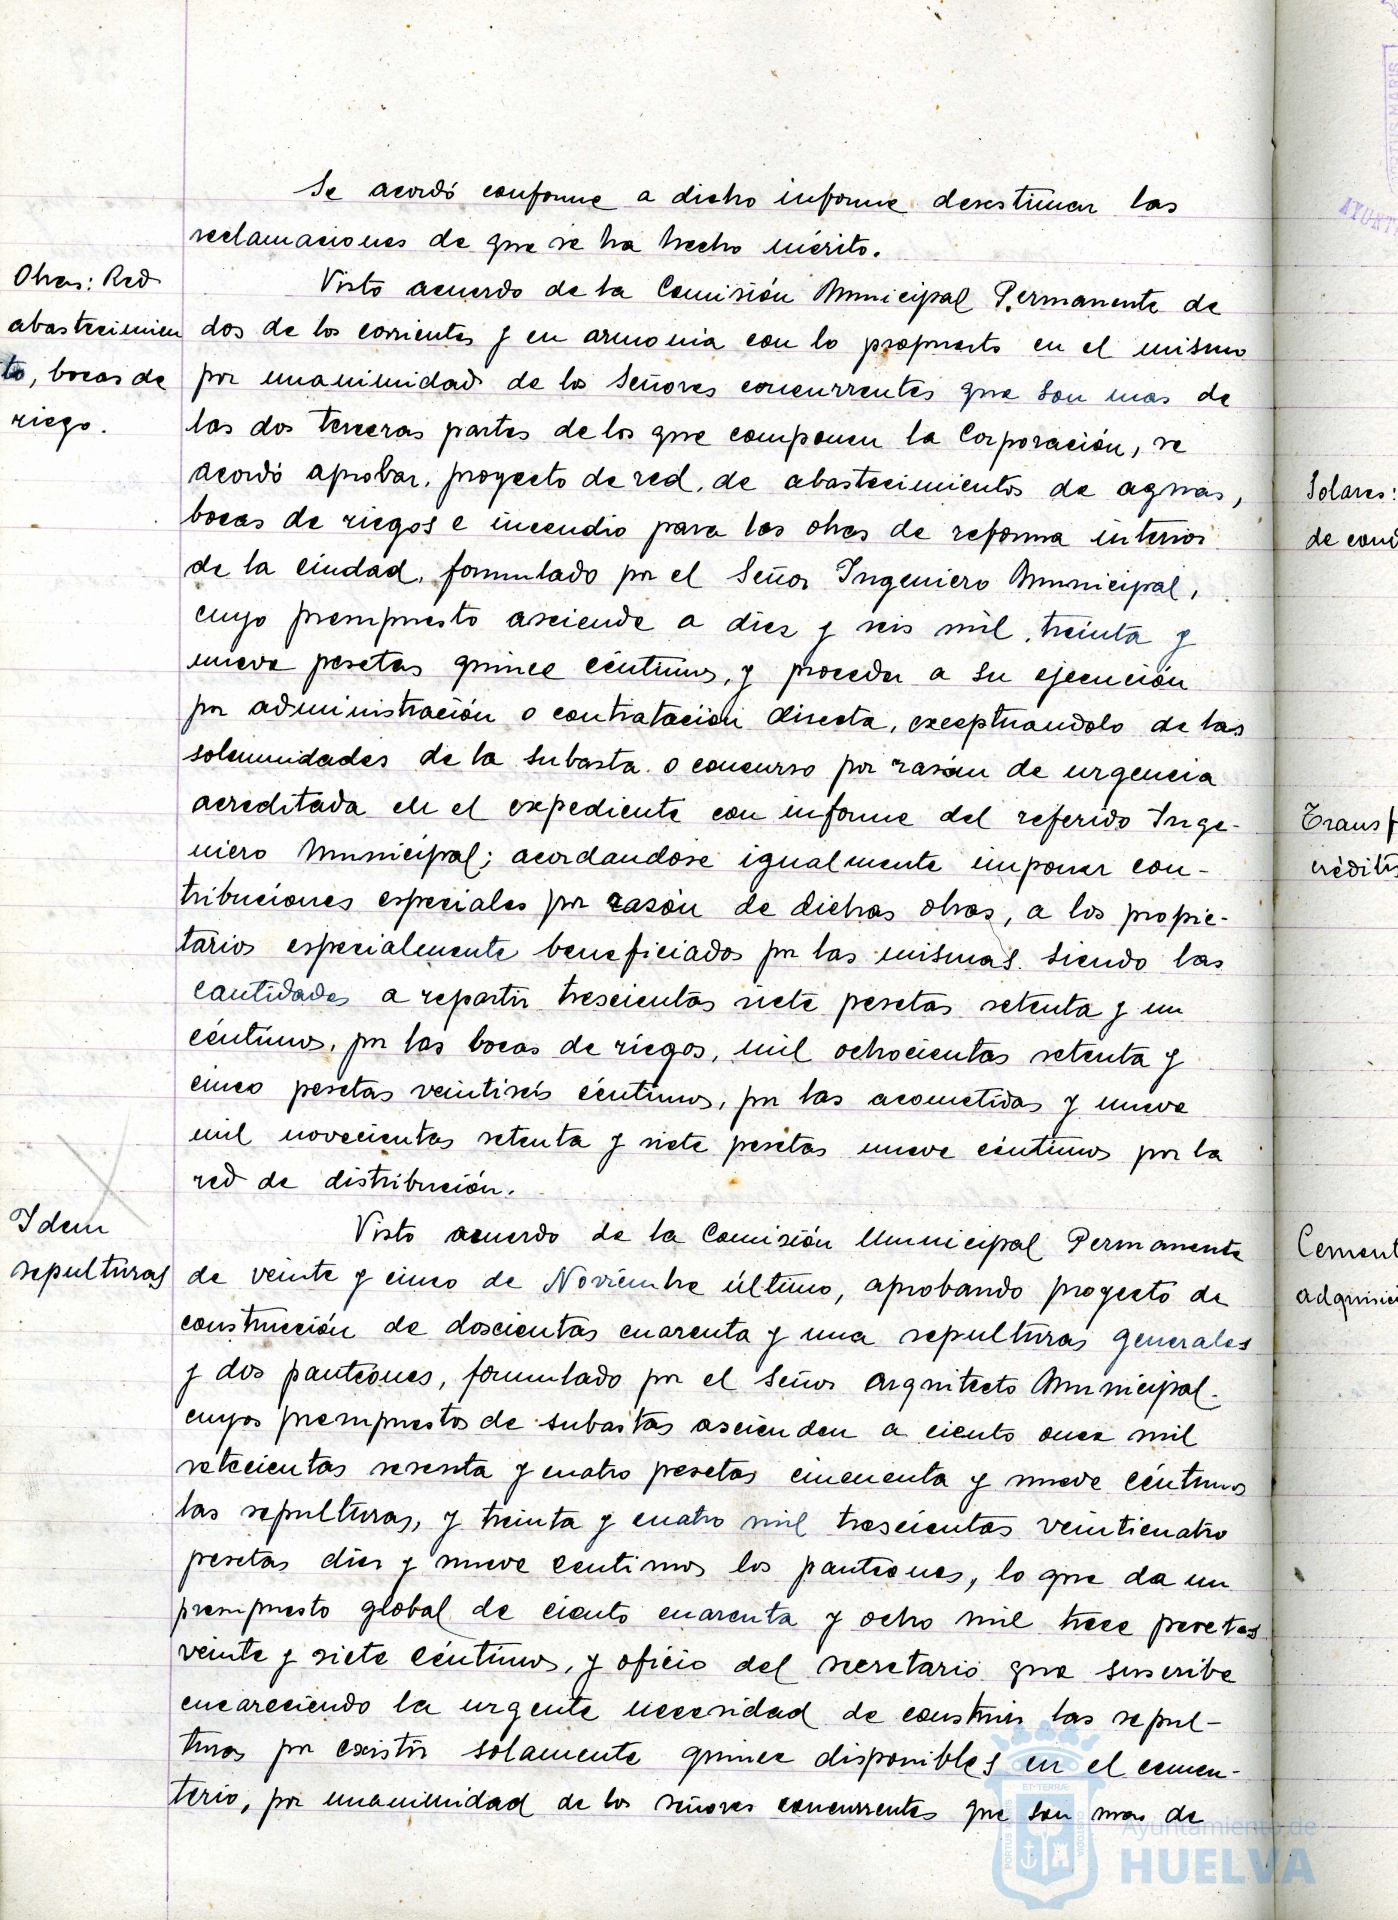 Se acordó conforme a dicho informe desestimar las
reclamaciones de que se ha hecho mérito.
Obras: Red
abastecimien
to, bocas de
riego.
Visto acuerdo de la Comisión Municipal Permanente de
dos de los corrientes y en armonia con lo propuesto en el mismo
por unanimidad de los Señores concurrentes que son mas de
las dos terceras partes de los que componen la Corporación, se
acordó aprobar, proyecto de red, de abastecimientos de aguas,
bocas de riegos e incendio para las obras de reforma interior
de la ciudad, formulado por el Señor Ingeniero Municipal,
cuyo presupuesto asciende a diez y seis mil, treinta y
nueve pesetas quince céntimos, y proceder a su ejecución
por administración o contratación directa, exceptuandolo de las
solemnidades de la subasta o concurso por razón de urgencia
acreditada en el expediente con informe del referido Inge-
niero Municipal; acordandose igualmente imponer con-
tribuciones especiales por razón de dichas obras, a los propie-
tarios especialmente beneficiados por las mismas siendo las
cantidades a repartir trescientas siete pesetas setenta y un
céntimos, por las bocas de riegos, mil ochocientas setenta y
cinco pesetas veintiseis céntimos, por las acometidas y nueve
mil novecientas setenta y siete pesetas nueve céntimos por la
red de distribución.
Idem
sepulturas
Visto acuerdo de la Comisión Municipal Permanente
de veinte y cinco de Noviembre último, aprobando proyecto de
construcción de doscientas cuarenta y una sepulturas generales
y dos panteones, formulado por el Señor Arquitecto Municipal
cuyos presupuestos de subastas ascienden a ciento once mil
setecientas sesenta y cuatro pesetas cincuenta y nueve céntimos
las sepulturas, y treinta y cuatro mil trescientas veinticuatro
pesetas diez y nueve centimos los panteones, lo que da un
presupuesto global de ciento cuarenta y ocho mil trece pesetas
veinte y siete céntimos, y oficio del secretario que suscribe
encareciendo la urgente necesidad de construir las sepul-
turas por existir solamente quince disponibles en el cemen-
terio, por unanimidad de los señores concurrentes que son mas de
Solares:
de cond
Transf
crédito
Cement
adquisici
PORTUS MARIS
AYUNT
PORTUS MARIS ET TERRÆ CUSTODIA
Ayuntamiento de
HUELVA